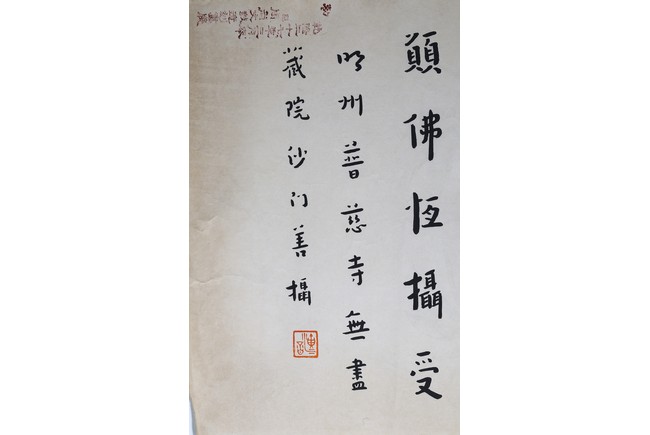 願佛恆攝受
明州普慈寺無盡
藏院沙门善攝